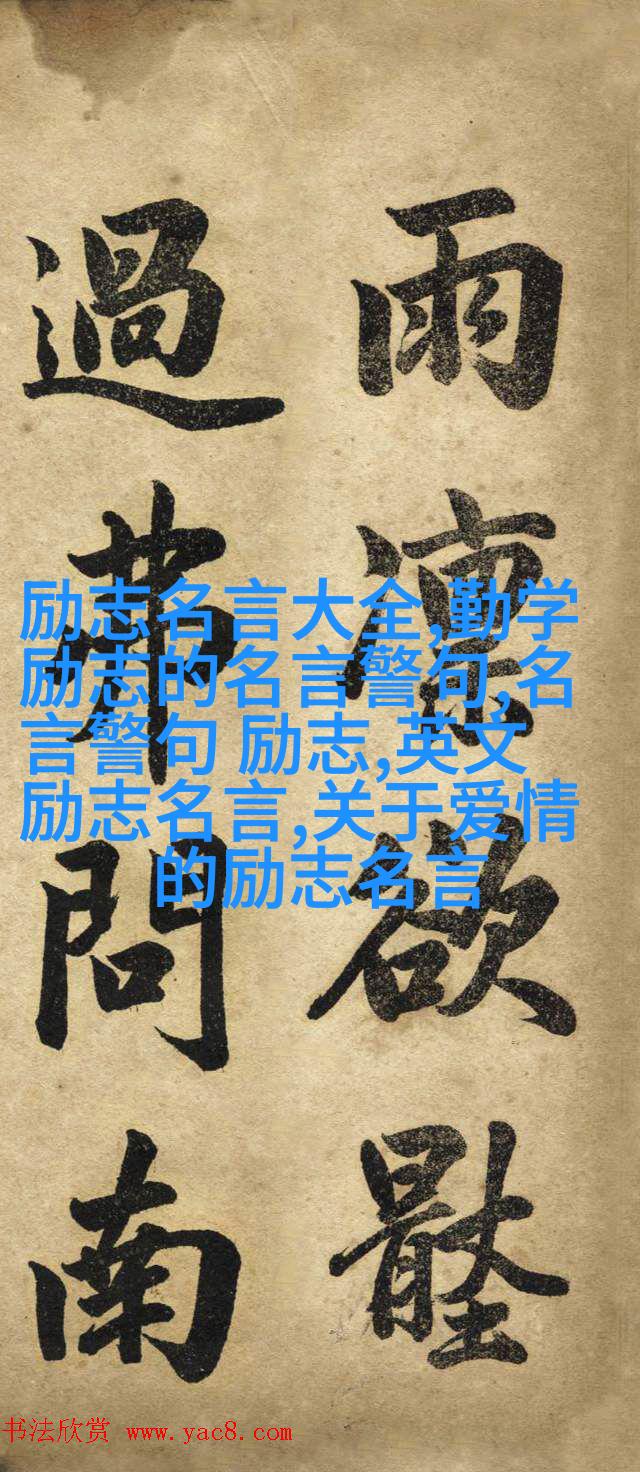 雨
欲
過
問南
励志名言大全,勤学
励志的名言警句,名
言警句 励志,英文
励志名言,关于爱情
的励志名言
书法欣赏 www.yac8.com